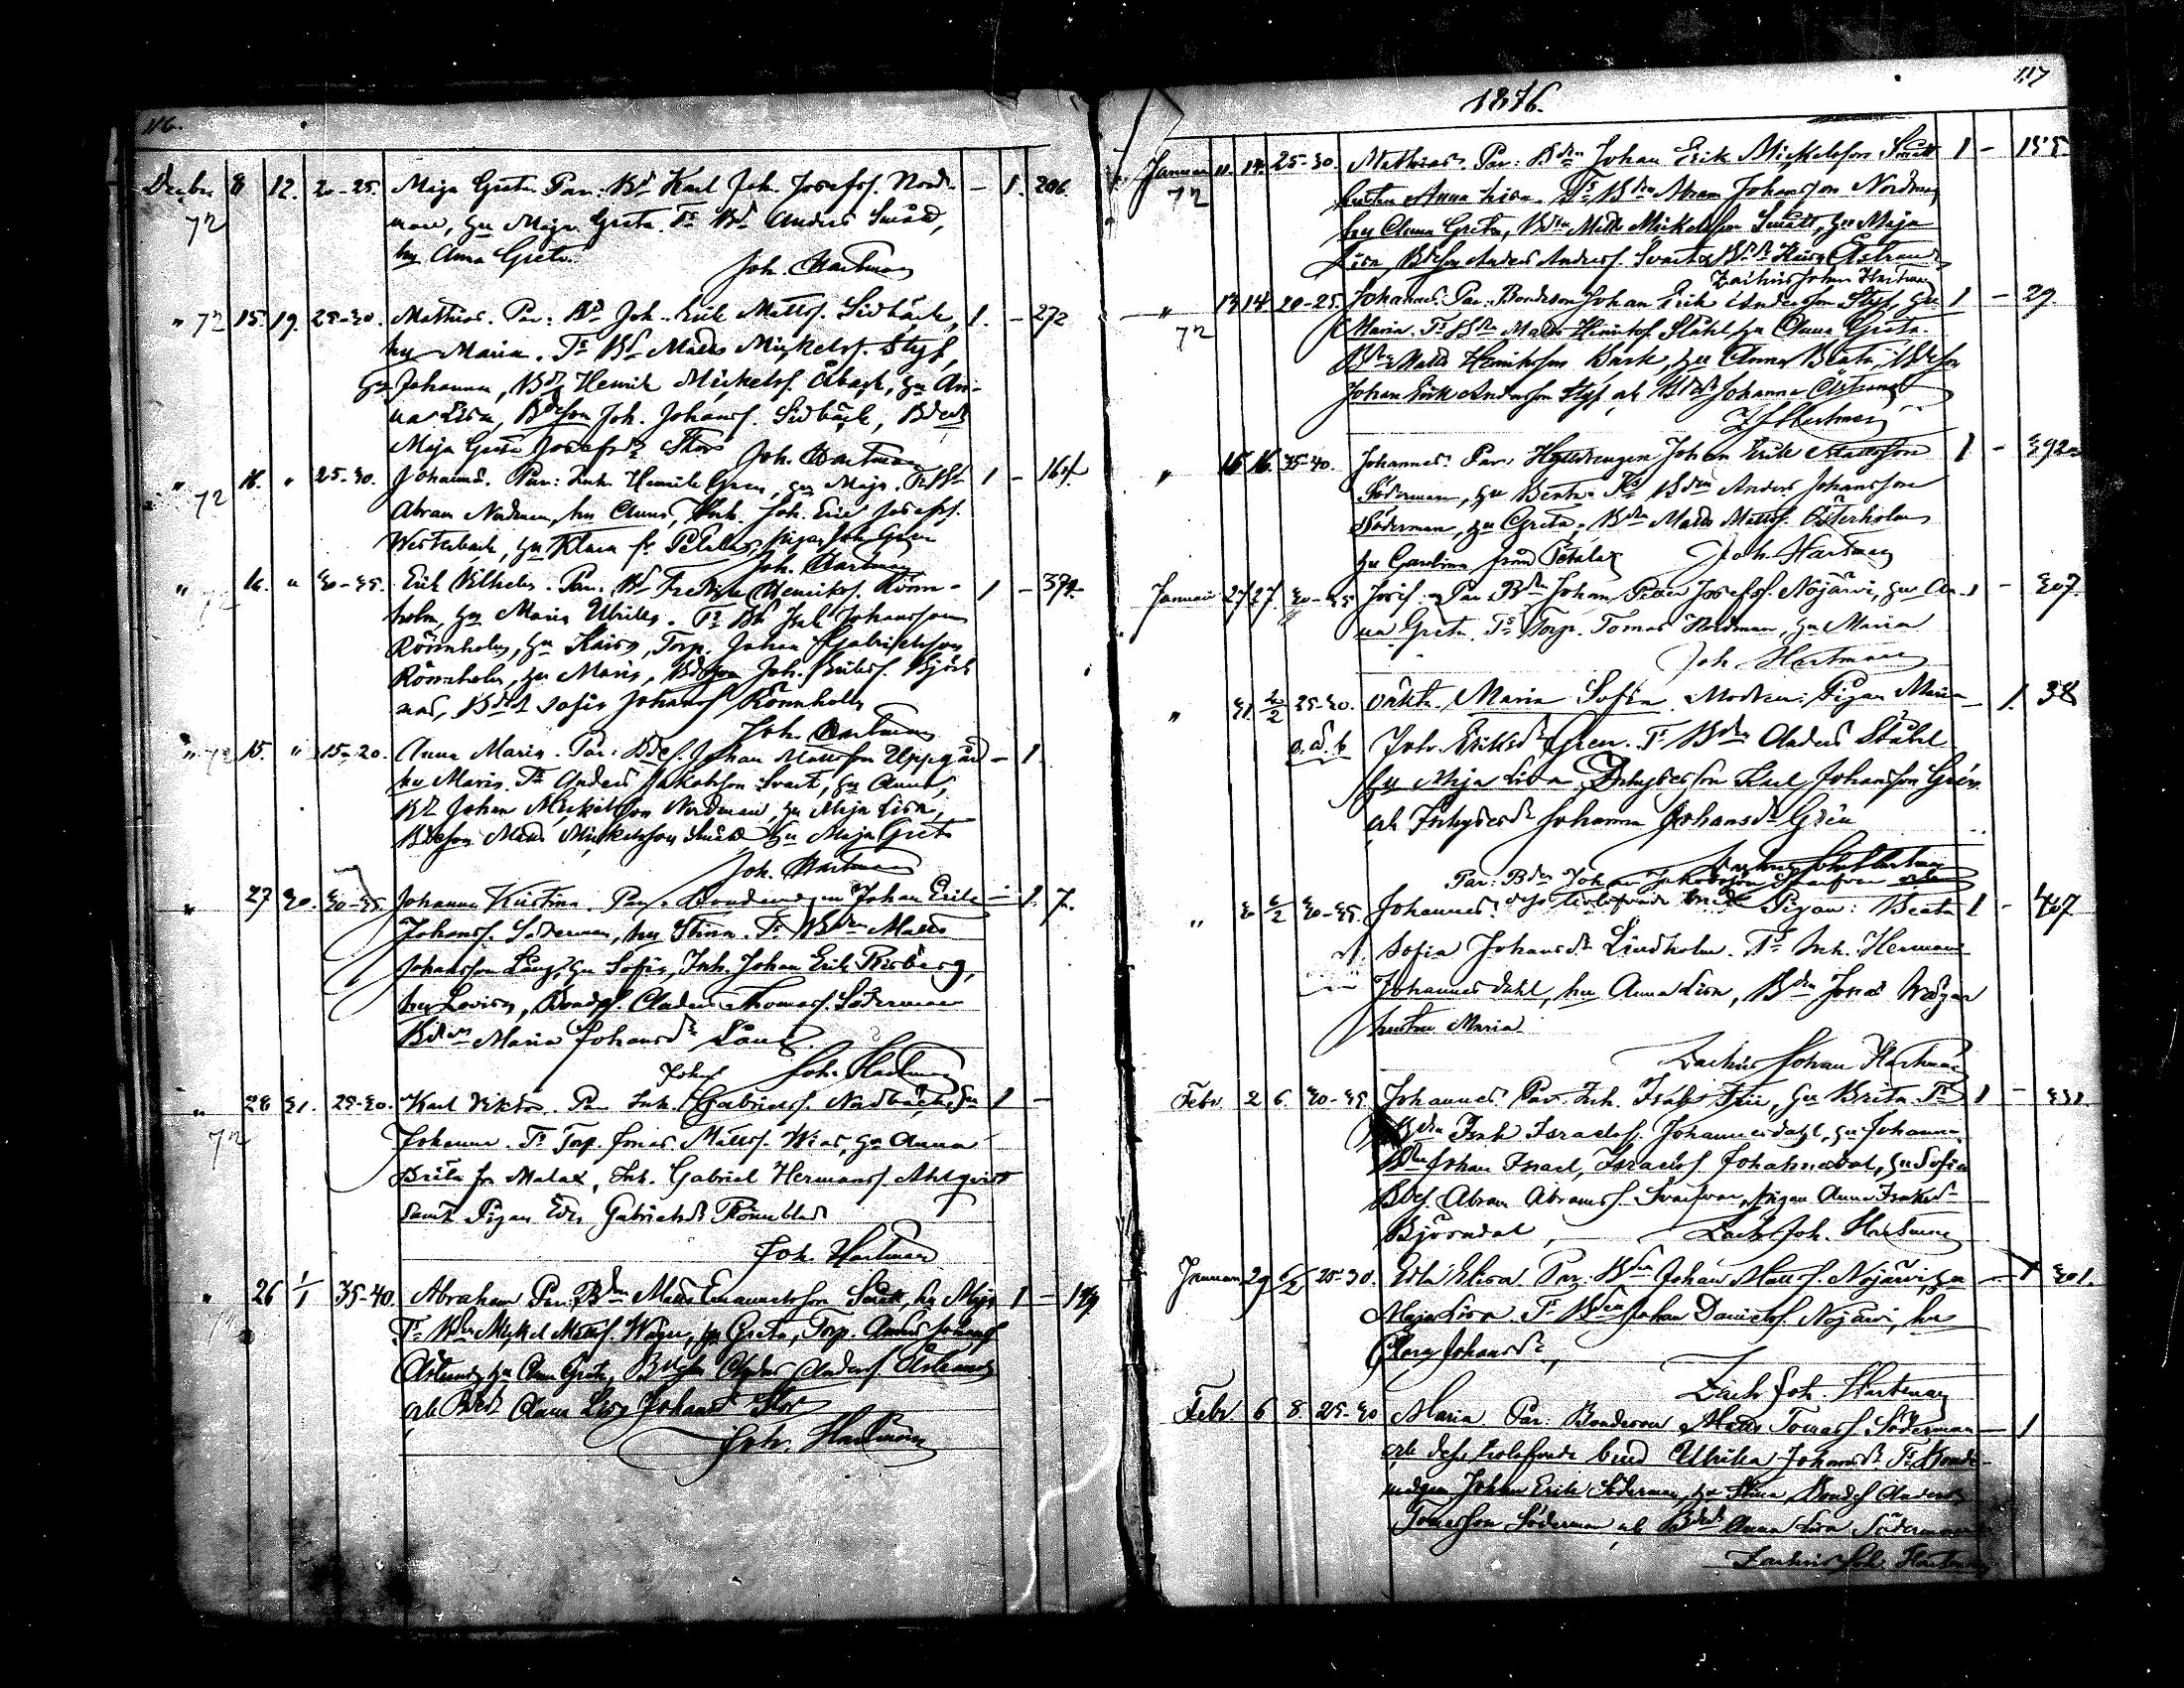 116.
Decbr 8 12. 20-25. Maja Greta. Par: Bd Karl Joh. Josefss. Nord- - 1. 206.
72 man, hu Maja Greta. Ts Bd Anders Smått,
hu Anna Greta.
Joh. Hartman
" 72 15. 19. 25-30. Mathias. Par: Bd Joh. Erik Mattss. Sidbäck, 1. - 272
hu Maria. Ts Bd Matts Mickelss. Styf,
hu Johanna, Bd Henrik Mickelss. Åback, hu An-
na Lisa, Bdeson Joh. Johanss. Sidbäck, Bded
Maja Greta Josefsdr Thors Joh. Hartman
" 72 16. " 25-30. Johannes. Par: Inh. Henrik Gren, hu Maja. Ts Bd 1 - 164
Abram Nordman, hu Anna, Inh. Joh. Eric Josefss.
Westerback, hu Klara fr Petalax, pigan Gren
Joh. Hartman
" 72 16. " 30-35. Erik Vilhelm. Par. Bd Fredrik Henrikss. Rönn- 1 - 374
holm, hu Maria Ulrika. Ts Bd Isak Johansson
Rönnholm, hu Kaisa, Torp. Johan Gabrielsson
Rönnholm, hu Maria, Bdeson Joh. Eriks. Björk
nas, Bded Sofia Johans Rönnholm
Joh. Hartman
" 72 15. " 15-20. Anna Maria. Par: Bdes. Johan Mattsson Uppgård - 1.
hu Maria. Ts Anders Jakobsson Svart, hu Anna,
Bd Johan Mickelsson Nordman, hu Maja Lisa,
Bdeson Matts Mickelsson Smått hu Maja Greta
Joh. Hartman
" 27 30. 30-35. Johanna Kristina. Par. Bondemågen Johan Erik - 1. 7.
Johanss. Söderman, hu Stina. Ts Bden Matts
Johansson Lång, hu Sofia, Inh. Johan Erik
hu Lovisa, Bondes. Anders Thomass. Söderman
Bded Maria Johansdr Lång.
Joh. Hartman
Johan
" 72 28 31. 25-30. Karl Viktor. Par Inh. Gabrielss. Nordbäck, hu 1 -
Johanna. Ts Torp. Jonas Mattss. Wias, hu Anna
Brita fr Malax, Inh. Gabriel Hermanss. Ahlqvist
samt Pigan Eva Gabrielsdr Rönnblad
Joh. Hartman
" 26 1/1 35-40. Abraham Par: Bden Matts Emanuelsson Smått, hu Maja 1 -
Ts Bden Mickel Mattss. Wägar, hu Greta, Torp. Anders Johanss
Åstrand, hu Anna Greta, Bdeson Anders Anderss. Åstrand
och Bded Anna Lisa Johansd Stor
Joh. Hartman
117
1876.
Januari 11. 14. 25-30. Mathias. Par: Bden Johan Erik Mickelsson Smått 1 - 155.
72 hustru Anna Lisa. Ts Bden Abram Johansson Nordman
hu Anna Greta, Bden Matts Mickelsson Smått, hu Maja
Lisa, Bdeson Anders Anderss. Svart o Bded Kaisa Åstrand
Zachris Johan Hartman
" 72 13 14 20-25. Johannes. Par: Bondeson Johan Erik Andersson Styf, hu 1 - 29
Maria. Ts Bden Matts Henrikss. Ståhl, hu Anna Greta.
Bden Matts Henriksson Bask, hu Anna Beata, Bdeson
Johan Erik Andersson Styf och Bded Johanna Östman
ZJHartman
" 16 16. 35-40. Johannes. Par: Hyttdrengen Johan Erik Mattsson 1 - 392
Söderman, hu Berta. Ts Bden Anders Johansson
Söderman, hu Greta, Bden Matts Mattss. Österholm
hu Carolina från Petalax Joh. Hartman
Januari 27 27. 30-35 Josef. Par Bdn Johan Petter Josefss. Nojärvi, hu An- 1 - 307.
na Greta. Ts Torp. Tomas Nordman, hu Maria
Joh Hartman
" 31 2/2 25-30. Oäkta. Maria Sofia. Modren: Pigan Maria - 1. 38
o. ä. b Joh. Eriksdr Gren. Ts Bden Anders Ståhl
hu Maja Lisa, Inhysesson Karl Johansson Grén
och Inhysesdr Johanna Johansdr Grén
Zachris Joh Hartman
Par: Bden Johan Jakobsson Svarfvar och
" 30 2/2 30-35. Johannes. dess trolofvade brud Pigan: Beata 1 - 407
Sofia Johansdr Lindholm. Ts Inh. Herman
Johannesdahl, hu Anna Lisa, Bden Jonas Wägar
hustru Maria.
Zachris Johan Hartman
Febr 2 6. 30-35. Johannes. Par. Inh. Isak Frii, hu Brita. Ts 1 - 331.
Bden Isak Israelss. Johannesdahl, hu Johanna,
Bden Johan Israel, Israelss. Johannesdal, hu Sofia
Bdes. Abram Abramss. Svarfvar, pigan Anna Isaksdr
Björndal, Zachr. Joh. Hartman
Januari 29 6/2 25-30. Edla Elisa. Par. Bden Johan Mattss. Nojärvi, hu - 1 301.
Maja Lisa Ts Bden Johan Danielss. Nojärvi, hu
Clara Johansdr,
Zachr Joh. Hartman
Febr 6 8 25-30 Maria. Par: Bondeson Matts Tomass. Söderman - 1
och dess trolofvade brud Ulrika Johansdr. Ts Bonde-
mågen Johan Erik Söderman, hu Stina, Bondes Anders
Tomasson Söderman och Bded Anna Lisa Söderman
Zachris Joh. Hartman